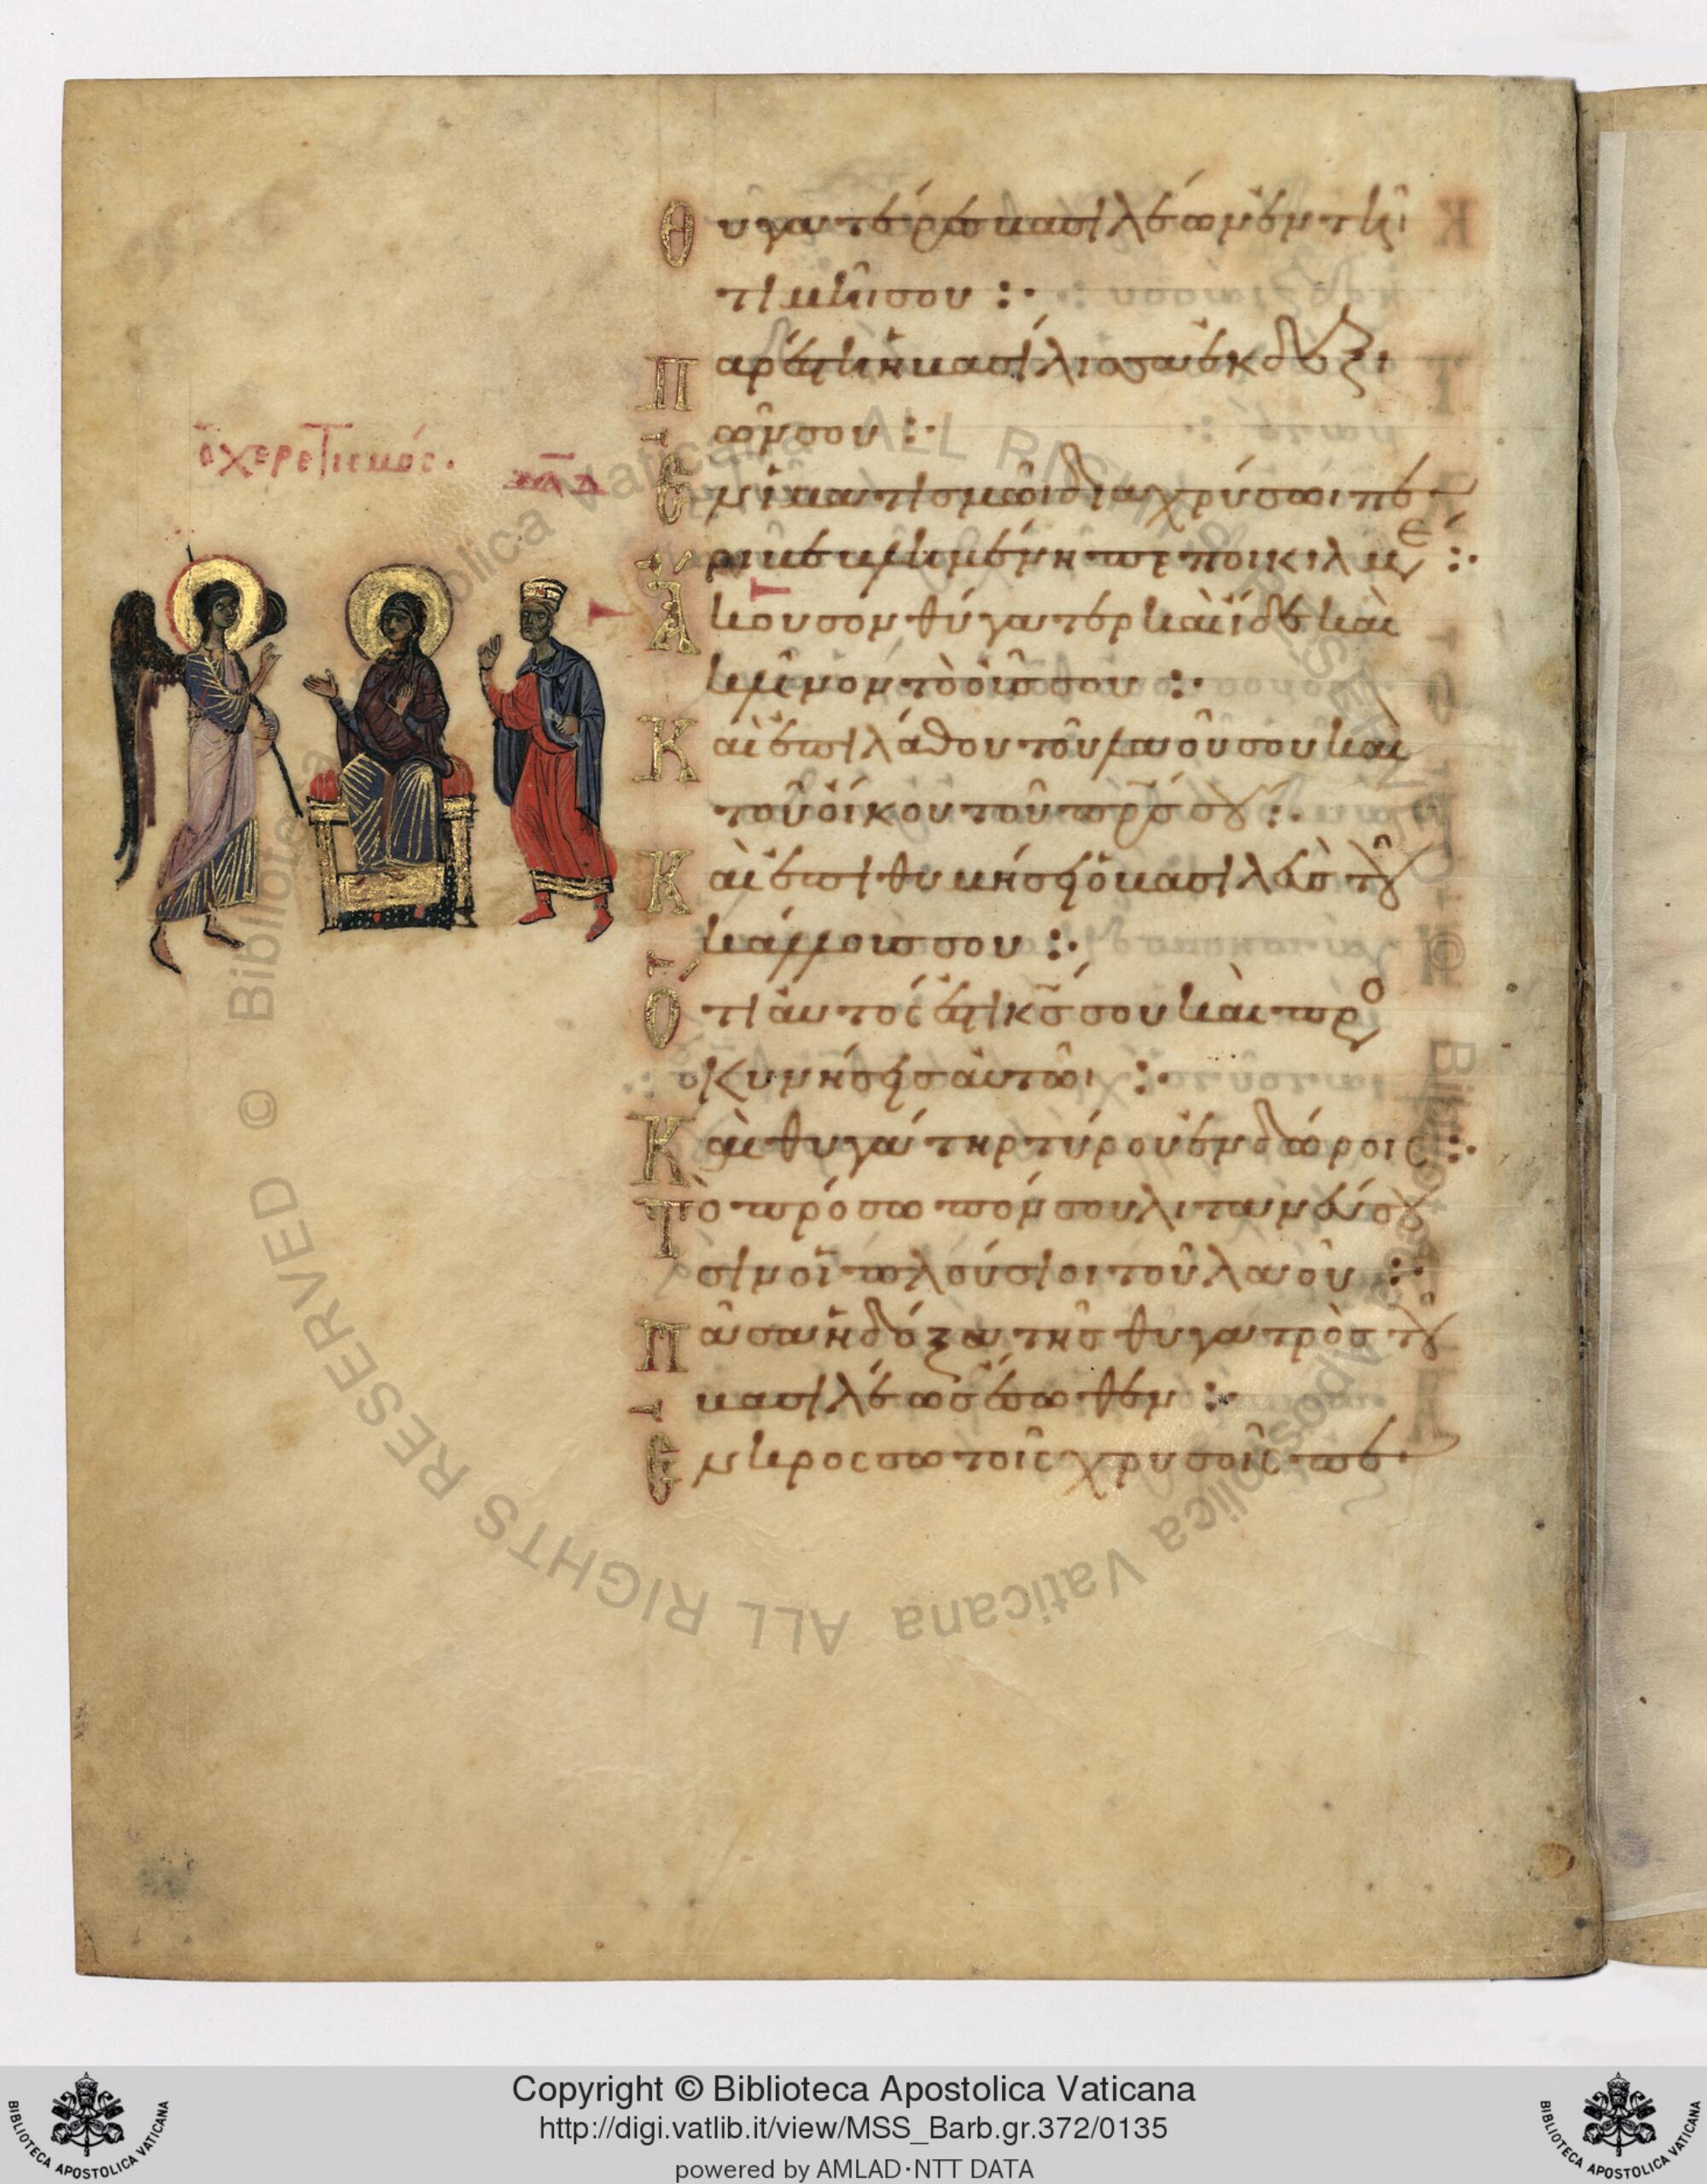 Θυγατέρες βασιλέων ἐν τῆι
τιμῆι σου :·
Παρέστη ἡ βασίλισσα ἐκ δεξι
ῶν σου :·
Ἐν ἱματισμῶι διαχρύσωι πε
ριβεβλημένη πεποικιλμένη :·
ὁ χερετισμός.
Ἄκουσον θύγατερ καὶ ἴδε καὶ
κλῖνον τὸ οὖς σου :·
Καὶ ἐπιλάθου τοῦ λαοῦ σου καὶ
τοῦ οἴκου τοῦ πρ̅ς σου :·
Καὶ ἐπιθυμήσει ὁ βασιλεὺς τοῦ
κάλλους σου :·
Ὅτι αὐτός ἐστι κ̅ς σου καὶ προ
σκυνήσεις αὐτῶι :·
Καὶ θυγάτηρ τύρου ἐν δώροις :·
Τὸ πρόσωπόν σου λιτανεύσου
σιν οἱ πλούσιοι τοῦ λαοῦ :·
Πᾶσα ἡ δόξα τῆς θυγατρὸς τοῦ
βασιλέως ἔσωθεν :·
Ἐν κροσσωτοῖς χρυσοῖς πε
Copyright © Biblioteca Apostolica Vaticana
http://digi.vatlib.it/view/MSS_Barb.gr.372/0135
powered by AMLAD·NTT DATA
BIBLIOTECA APOSTOLICA VATICANA
BIBLIOTECA APOSTOLICA VATICANA
© Biblioteca Apostolica Vaticana ALL RIGHTS RESERVED © Biblioteca Apostolica Vaticana ALL RIGHTS RESERVED